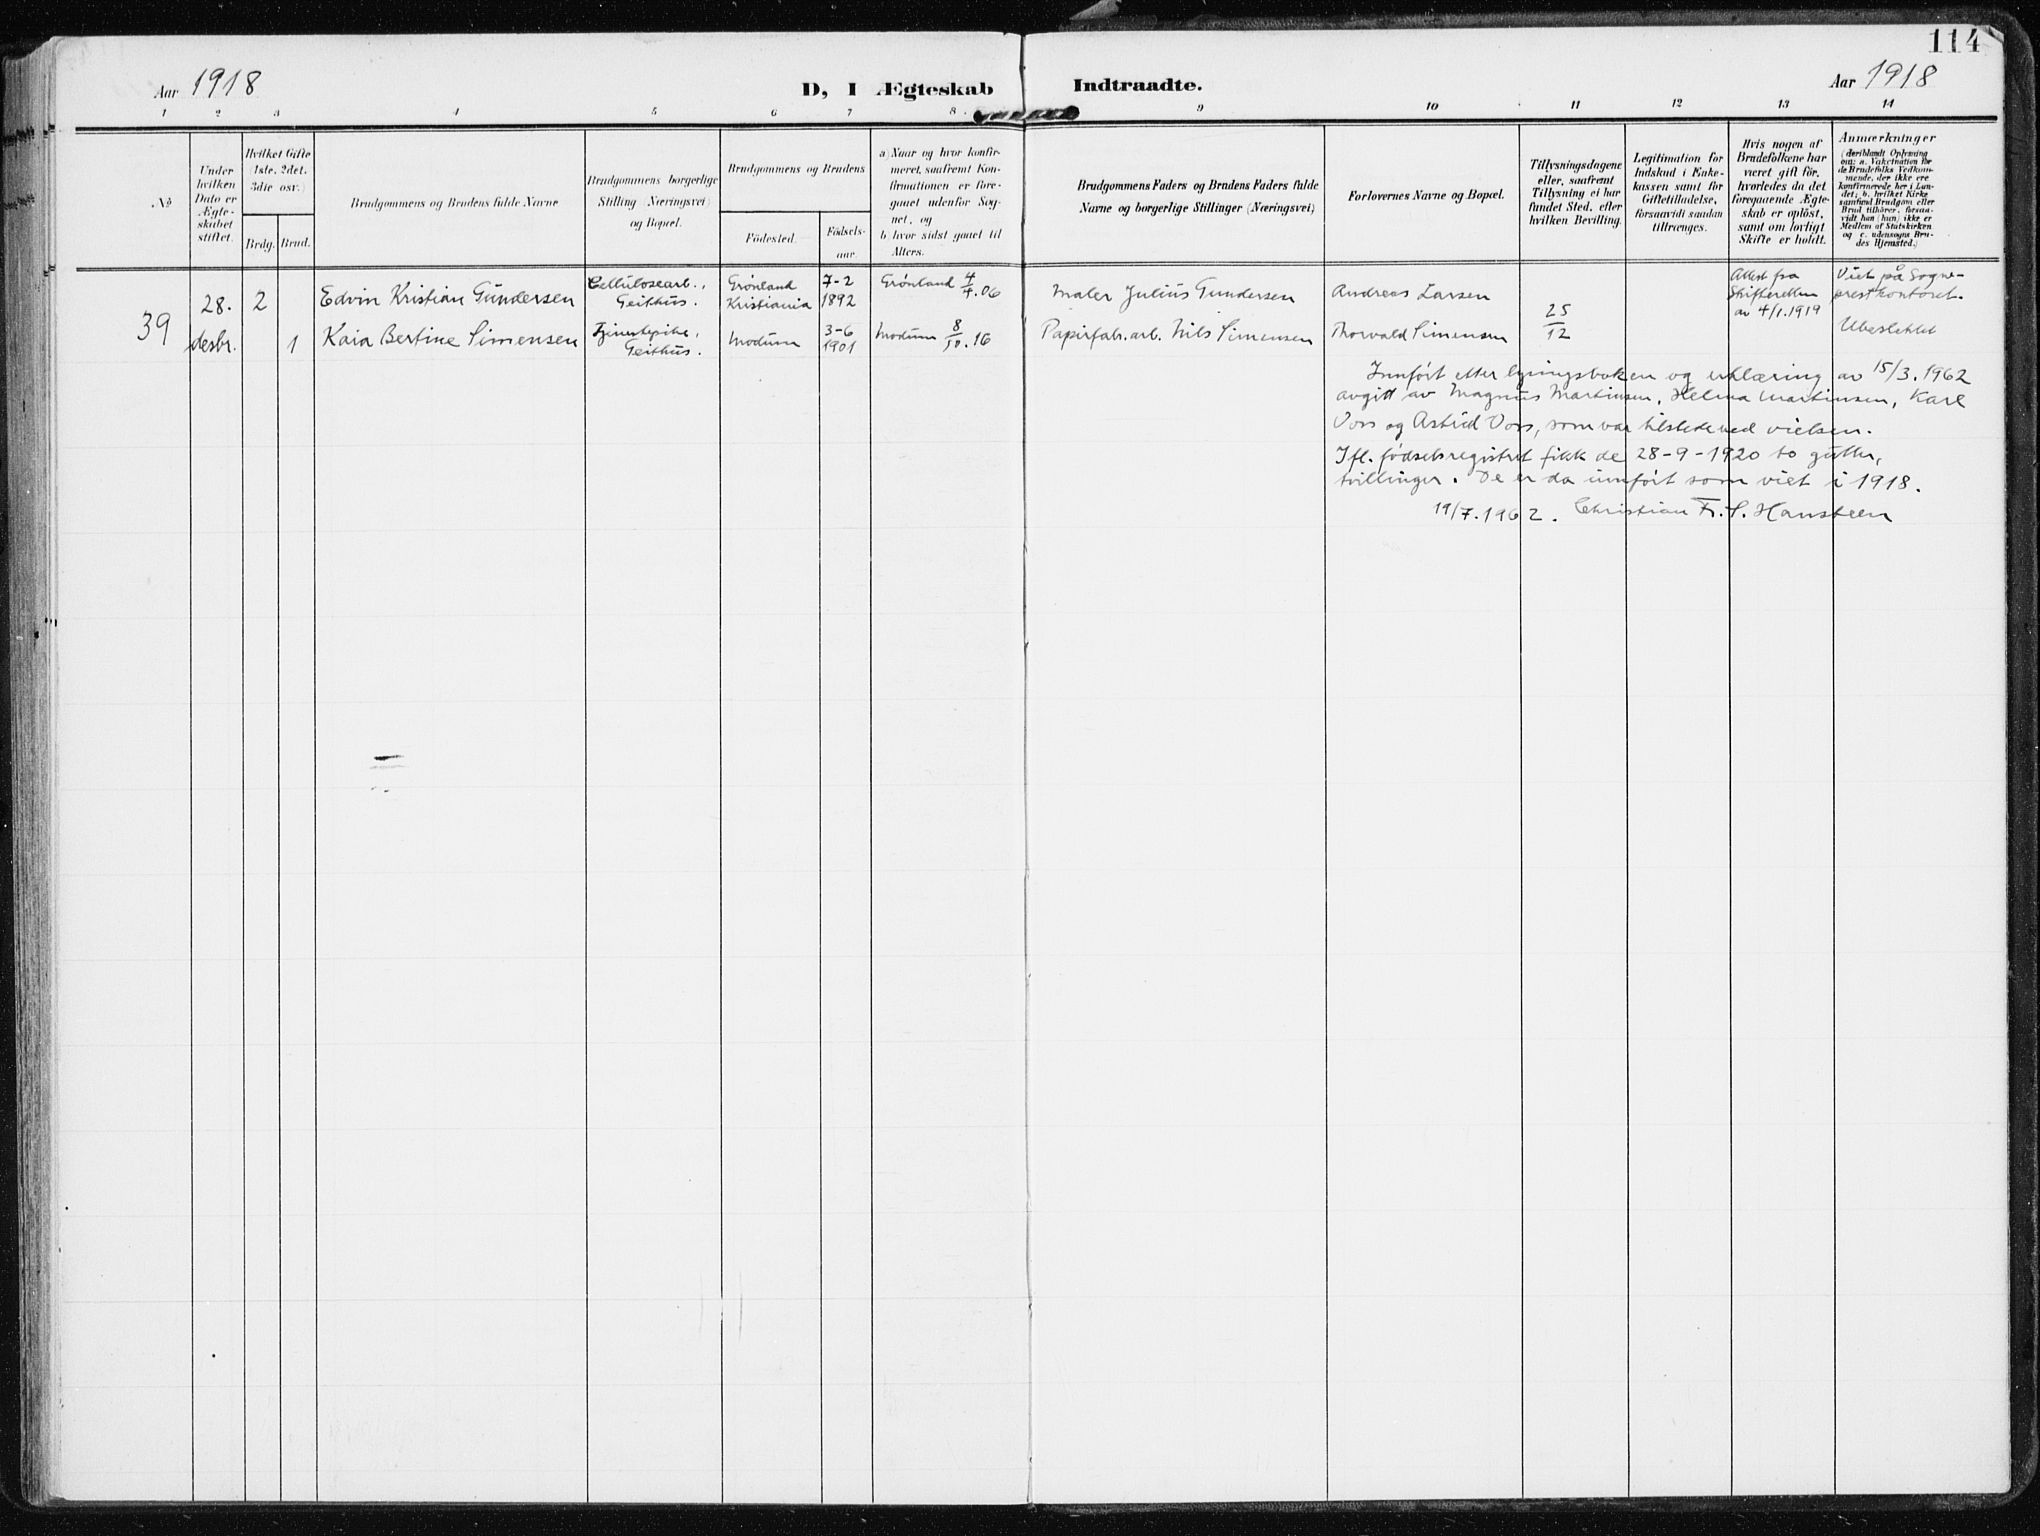 114
Aar 1918
D, I Ægteskab Indtraadte.
Aar 1918
1 2 3 4 5 6 7 8. 9 10 11 12 13 14
No
Under
hvilken
Dato er
Ægte-
skabet
stiftet.
Hvilket Gifte
(1ste, 2det,
3die osv.)
Brdg. Brud.
Brudgommens og Brudens fulde Navne
Brudgommens borgerlige
Stilling (Næringsvei)
og Bopæl.
Brudgommens og Brudens
Fødested.
Fødsels-
aar.
a) Naar og hvor konfir-
meret, saafremt Kon-
firmationen er fore-
gaaet udenfor Sog-
net, og
b. hvor sidst gaaet til
Alters.
Brudgommens Faders og Brudens Faders fulde
Navne og borgerlige Stillinger (Næringsvei)
Forlovernes Navne og Bopæl.
Tillysningsdagene
eller, saafremt
Tillysning ei har
fundet Sted, efter
hvilken Bevilling.
Legitimation for
Indskud i Enke-
kassen samt for
Giftetilladelse,
forsaavidt saadan
tiltrænges.
Hvis nogen af
Brudefolkene har
været gift før,
hvorledes da det
foregaaende Ægte-
skab er opløst,
samt om lovligt
Skifte er holdt.
Anmærkninger
(deriblandt Oplysning
om: a. Vakcination for
de Brudefolks Vedkom-
mende, der ikke ere
konfirmerede her i Lan-
det; b. hvilket Kirke
samfund Brudgom eller
Brud tilhører, forsaa-
vidt han (hun) ikke er
Medlem af Statskirken
og c. udensogns Bru-
des Hjemsted.)
39
28.
desbr.
2
Edvin Kristian Gundersen
Cellulosearb.,
Geithus.
Grønland
Kristiania
7-2
1892
Grønland 4/4.06
Maler Julius Gundersen
Andreas Larsen
25/12
Attest fra
Skifteretten
av 4/1.1919
Viet på Sogne-
prestkontoret.
1
Kaia Bertine Simensen
Tjenestepike,
Geithus.
Modum
3-6
1901
Modum 8/10.16
Papirfab.arb. Nils Simensen
Thorvald Simensen
Ubeslektet
Innført etter lysningsboken og erklæring av 15/3.1962
avgitt av Magnus Martinsen, Helma Martinsen, Karl
Voss og Astrid Voss, som var tilstede ved vielsen.
Ifl. fødselsregistret fikk de 28-9-1920 to gutter,
tvillinger. De er da innført som viet i 1918.
19/7.1962. Christian Fr. S. Hansteen